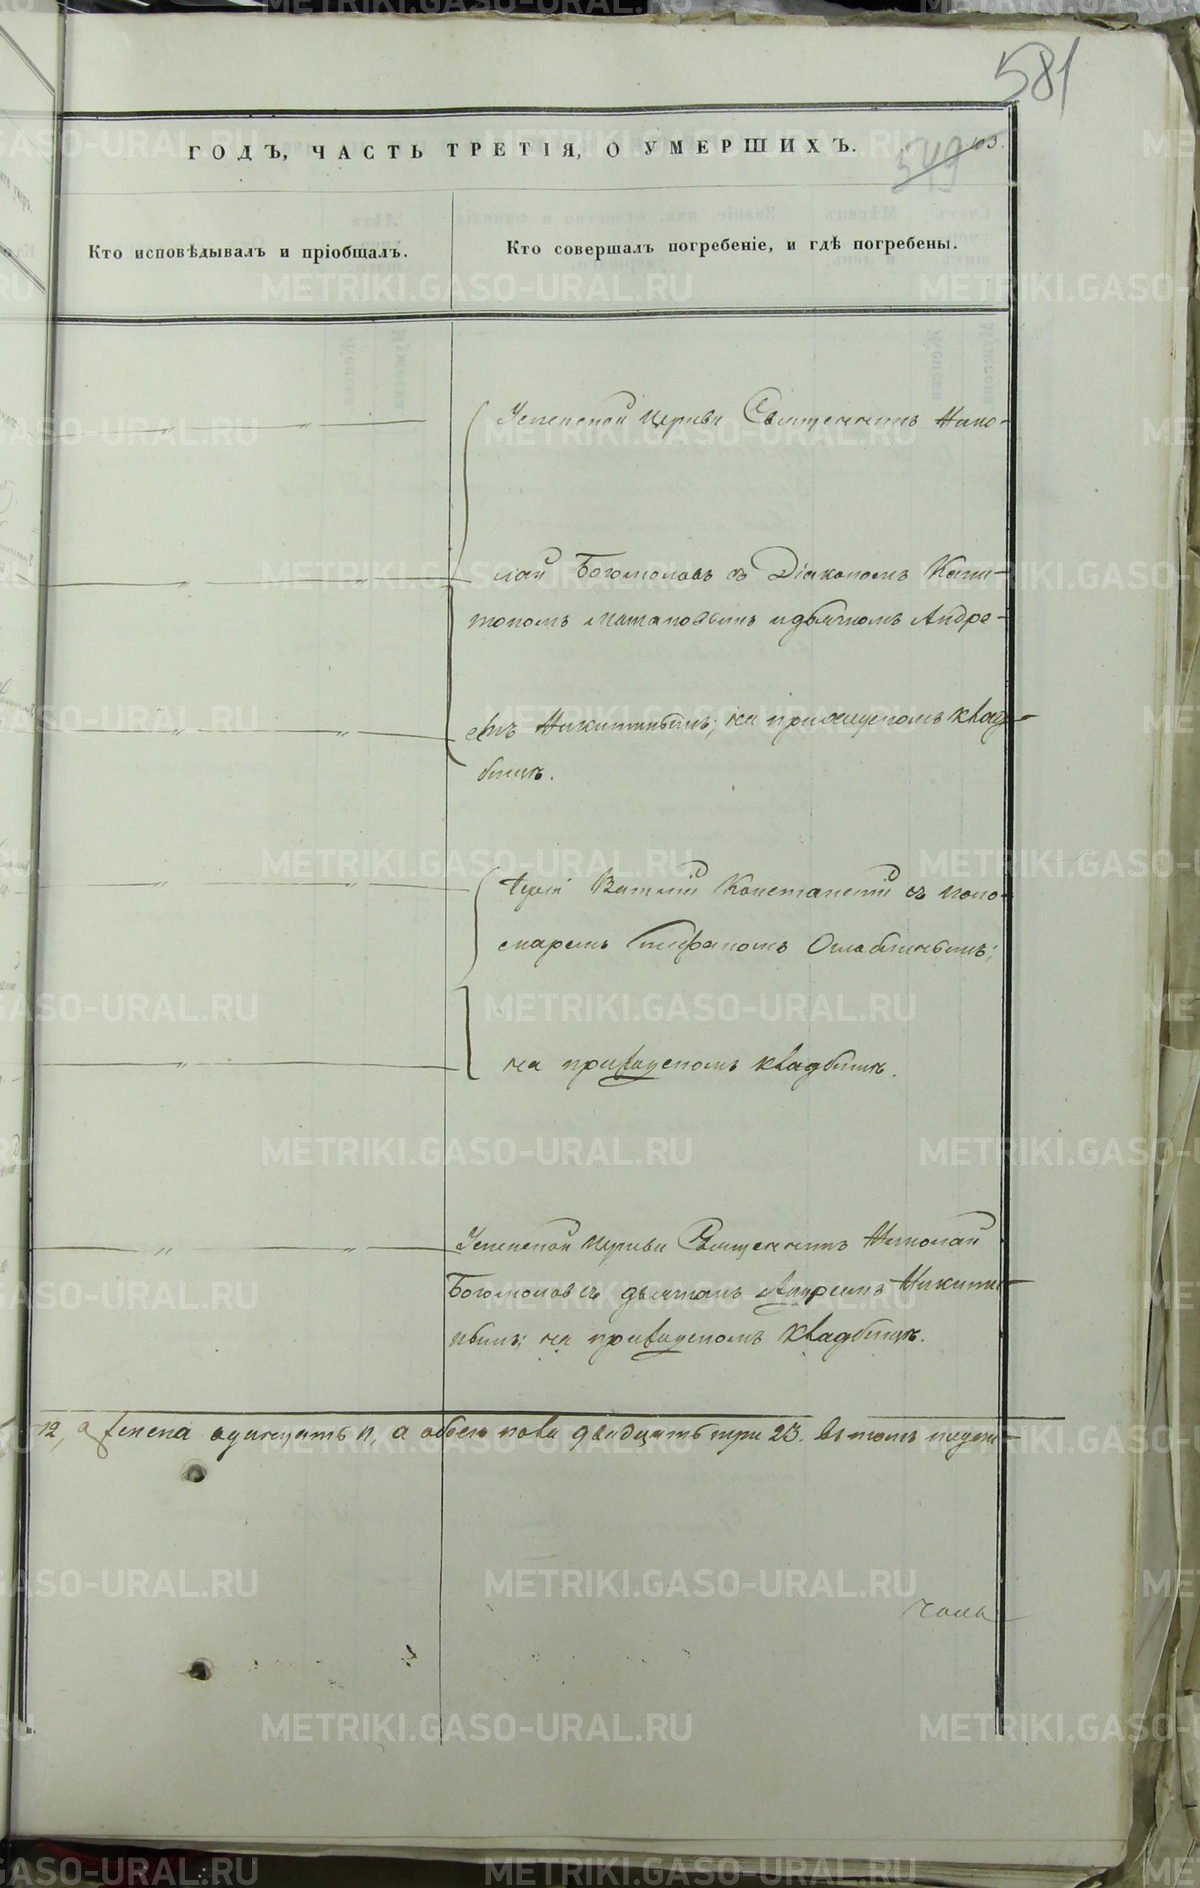 581
ГОДЪ, ЧАСТЬ ТРЕТІЯ, О УМЕРШИХЪ.
549
103.
Кто исповѣдывалъ и пріобщалъ.
Кто совершалъ погребеніе, и гдѣ погребены.
Успенской Церкви Священникъ Нико-
лай Богомоловъ съ Діакономъ Капи-
тономъ и дьячкомъ Андре-
емъ Никитинымъ; на приходскомъ клад-
бищѣ.
Іерей Константинъ съ поно-
маремъ Стефаномъ
на приходскомъ кладбищѣ.
Успенской Церкви Священникъ Николай
Богомоловъ съ дьячкомъ Андреемъ Никити-
нымъ; на приходскомъ кладбищѣ.
12, а женска одинцать 11, а обоего пола двадцать три 23. Въ томъ
METRIKI.GASO-URAL.RU